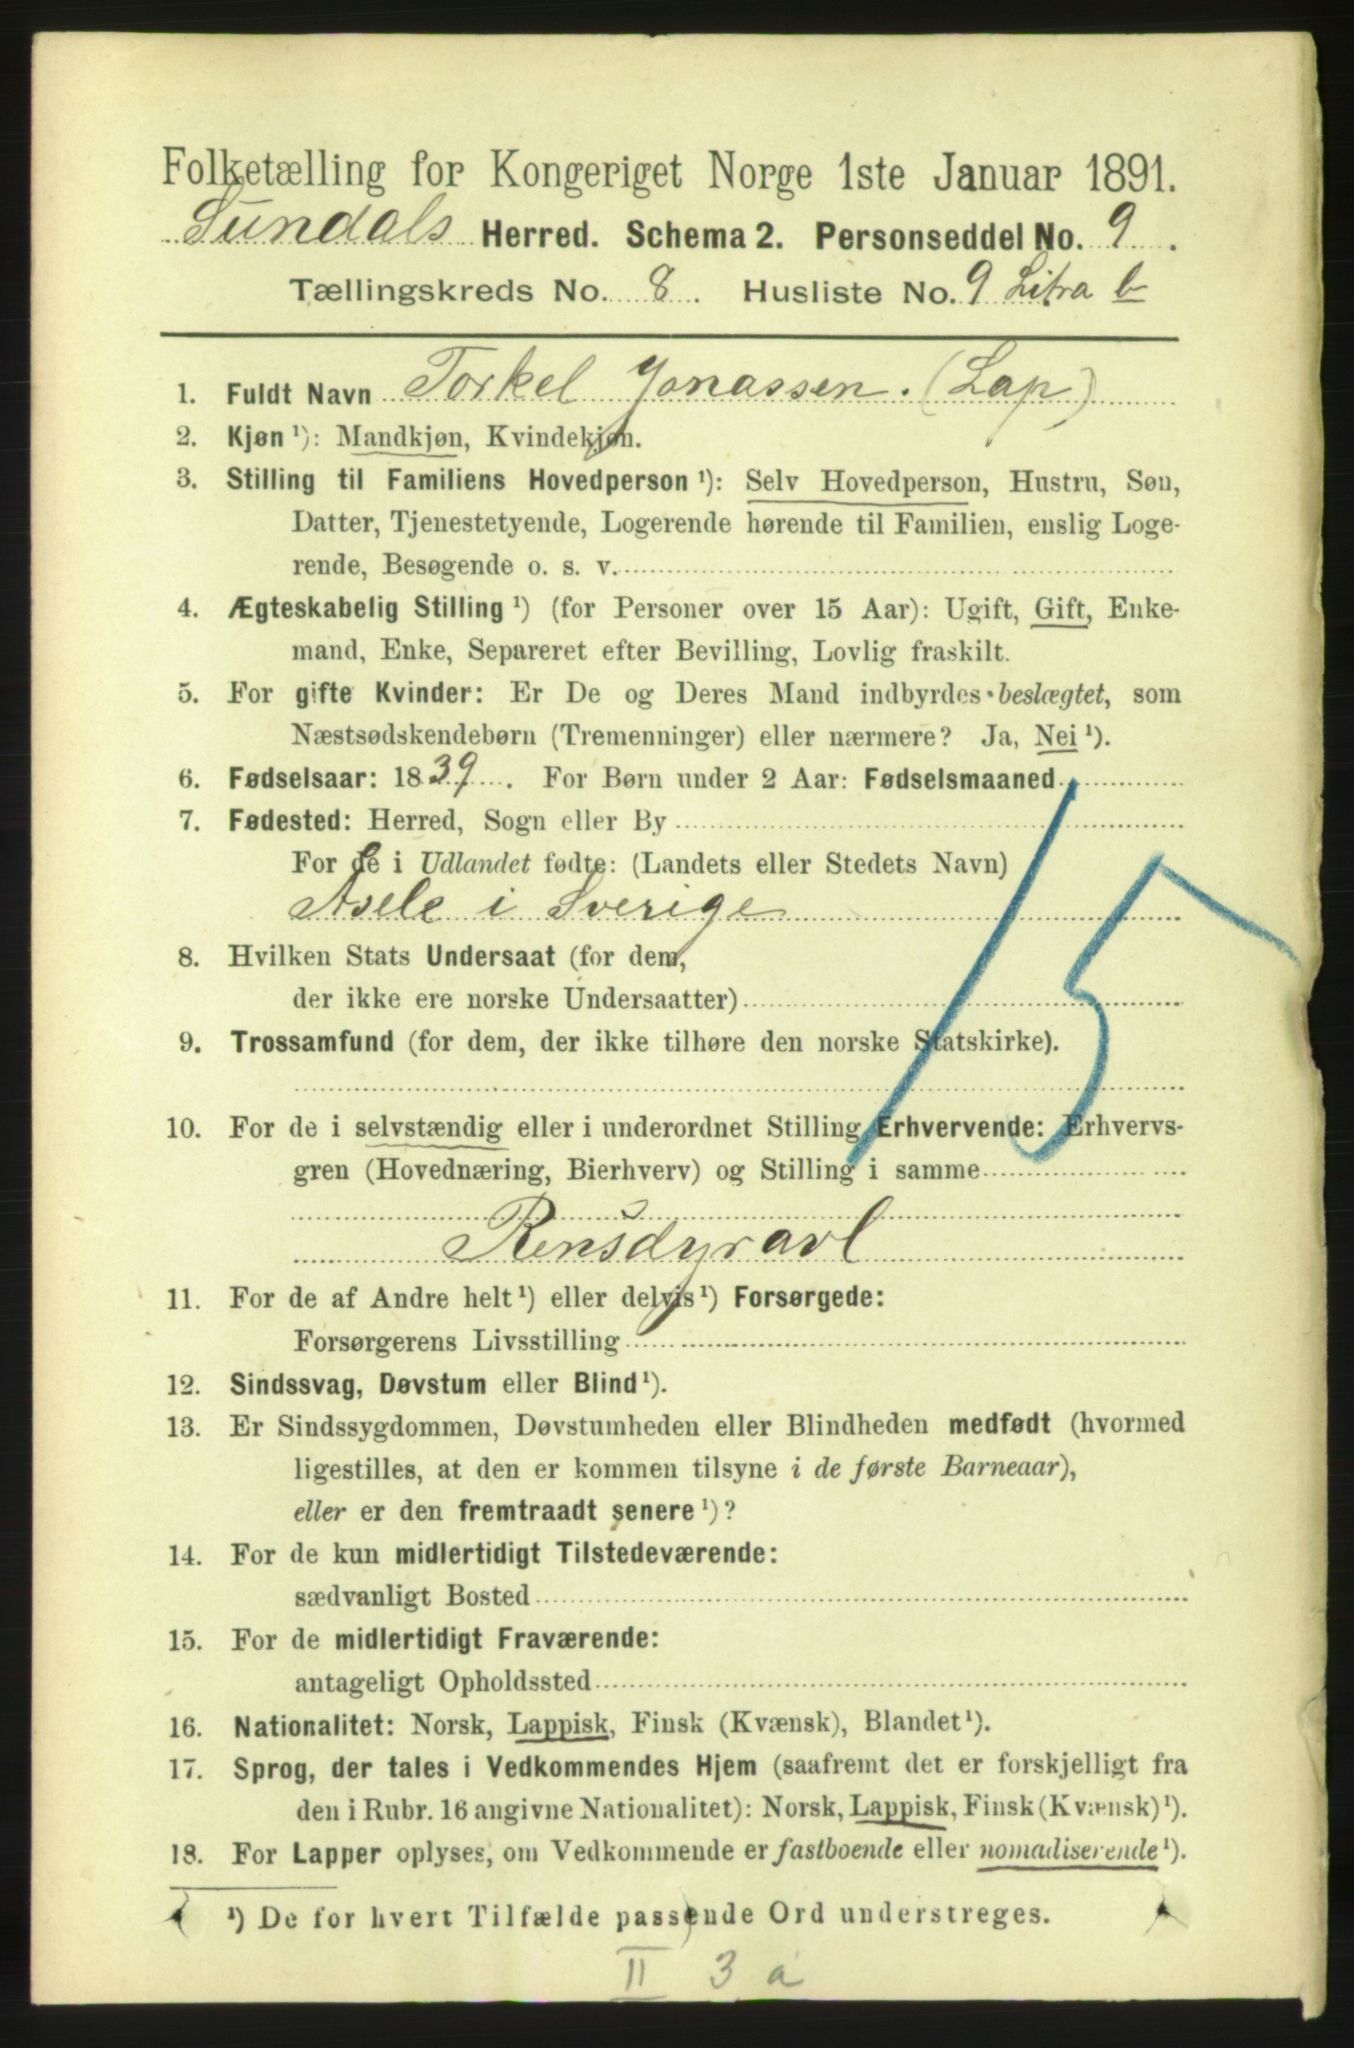 Folketælling for Kongeriget Norge 1ste Januar 1891.
Sundals Herred. Schema 2. Personseddel No. 9.
Tællingskreds No. 8. Husliste No. 9 Litra b
1. Fuldt Navn Torkel Jonassen. (Lap)
2. Kjøn ¹): Mandkjøn, Kvindekjøn.
3. Stilling til Familiens Hovedperson ¹): Selv Hovedperson, Hustru, Søn,
Datter, Tjenestetyende, Logerende hørende til Familien, enslig Loge-
rende, Besøgende o. s. v.
4. Ægteskabelig Stilling ¹) (for Personer over 15 Aar): Ugift, Gift, Enke-
mand, Enke, Separeret efter Bevilling, Lovlig fraskilt.
5. For gifte Kvinder: Er De og Deres Mand indbyrdes beslægtet, som
Næstsødskendebørn (Tremenninger) eller nærmere? Ja, Nei ¹).
6. Fødselsaar: 1839. For Børn under 2 Aar: Fødselsmaaned
7. Fødested: Herred, Sogn eller By
For de i Udlandet fødte: (Landets eller Stedets Navn)
Asele i Sverige
8. Hvilken Stats Undersaat (for dem,
der ikke ere norske Undersaatter)
9. Trossamfund (for dem, der ikke tilhøre den norske Statskirke).
15
10. For de i selvstændig eller i underordnet Stilling Erhvervende: Erhvervs-
gren (Hovednæring, Bierhverv) og Stilling i samme
Rensdyravl
11. For de af Andre helt ¹) eller delvis ¹) Forsørgede:
Forsørgerens Livsstilling
12. Sindssvag, Døvstum eller Blind ¹).
13. Er Sindssygdommen, Døvstumheden eller Blindheden medfødt (hvormed
ligestilles, at den er kommen tilsyne i de første Barneaar),
eller er den fremtraadt senere ¹)?
14. For de kun midlertidigt Tilstedeværende:
sædvanligt Bosted
15. For de midlertidigt Fraværende:
antageligt Opholdssted
16. Nationalitet: Norsk, Lappisk, Finsk (Kvænsk), Blandet ¹).
17. Sprog, der tales i Vedkommendes Hjem (saafremt det er forskjelligt fra
den i Rubr. 16 angivne Nationalitet): Norsk, Lappisk, Finsk (Kvænsk) ¹).
18. For Lapper oplyses, om Vedkommende er fastboende eller nomadiserende ¹).
¹) De for hvert Tilfælde passende Ord understreges.
II 3 a